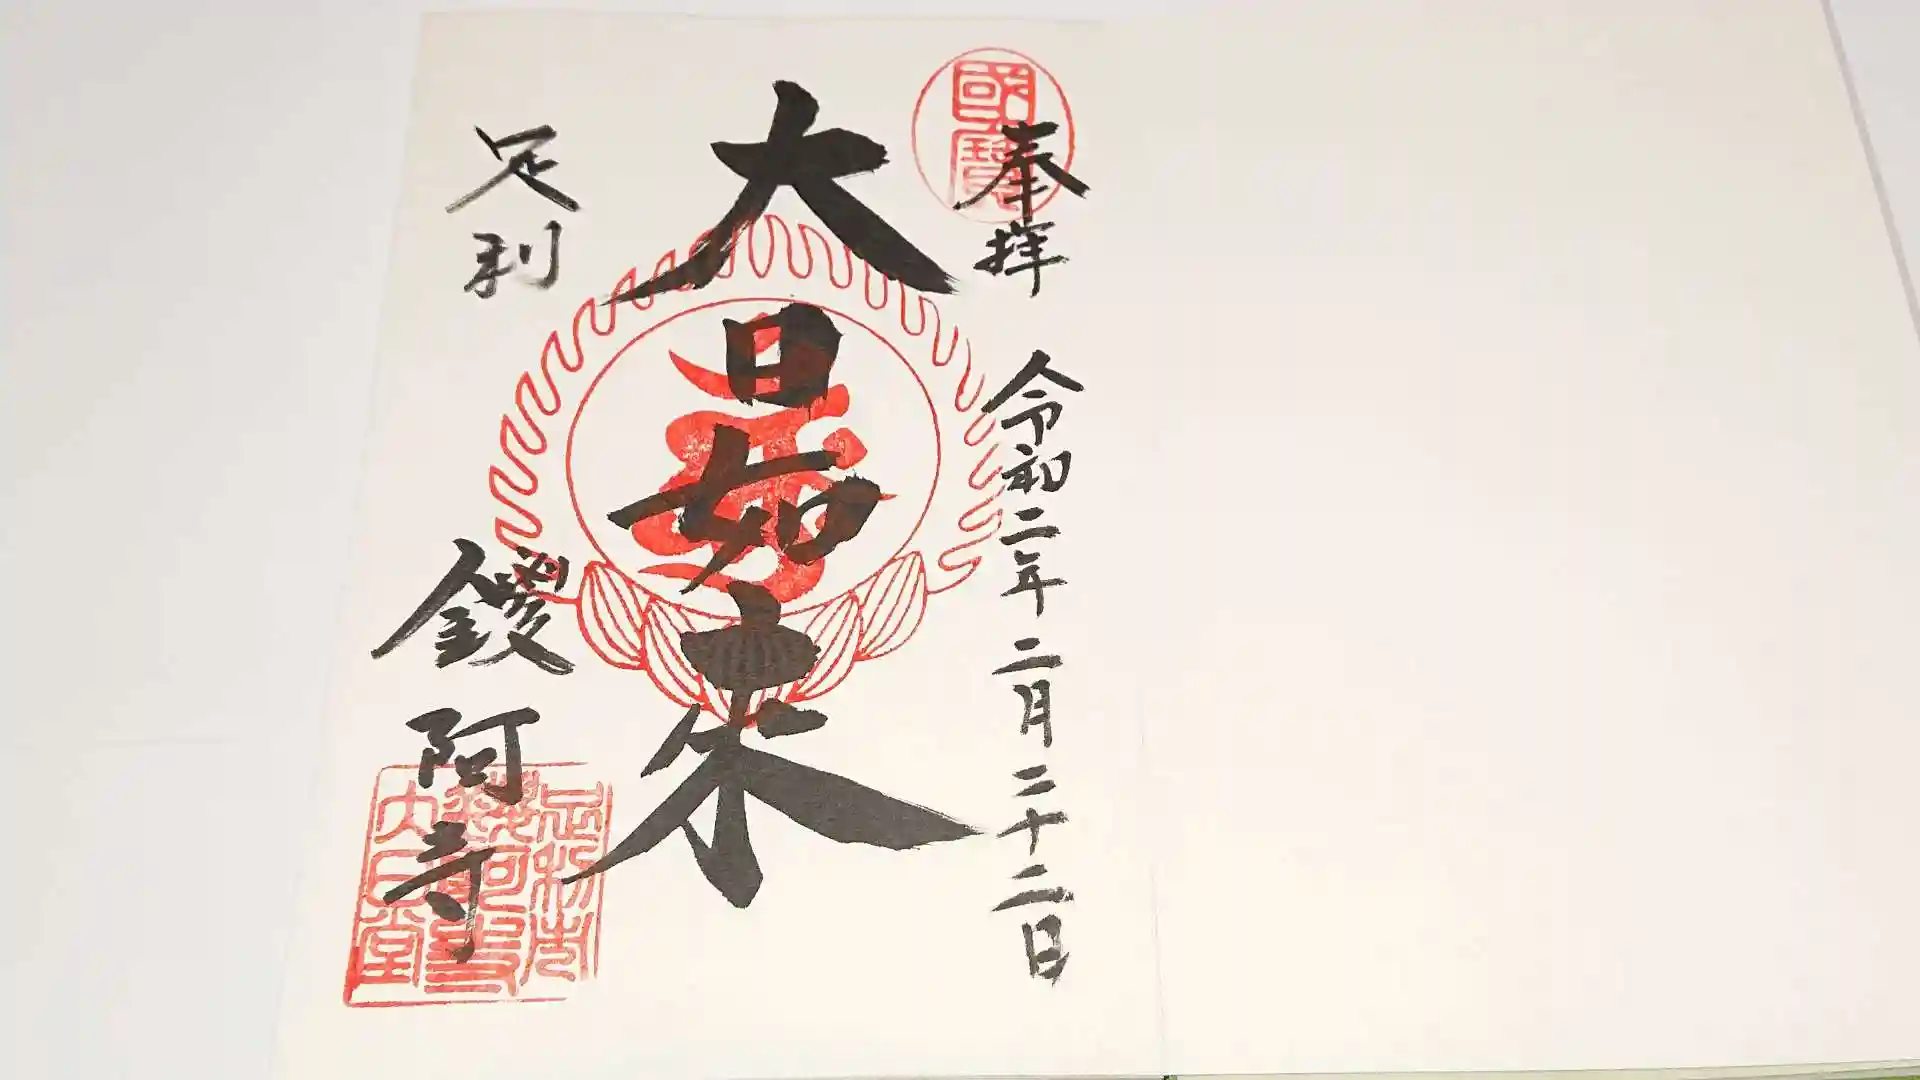 奉拝 令和二年 二月二十二日
國寶
大日如来
足利 鑁阿寺
足利市
鑁阿寺
大日堂